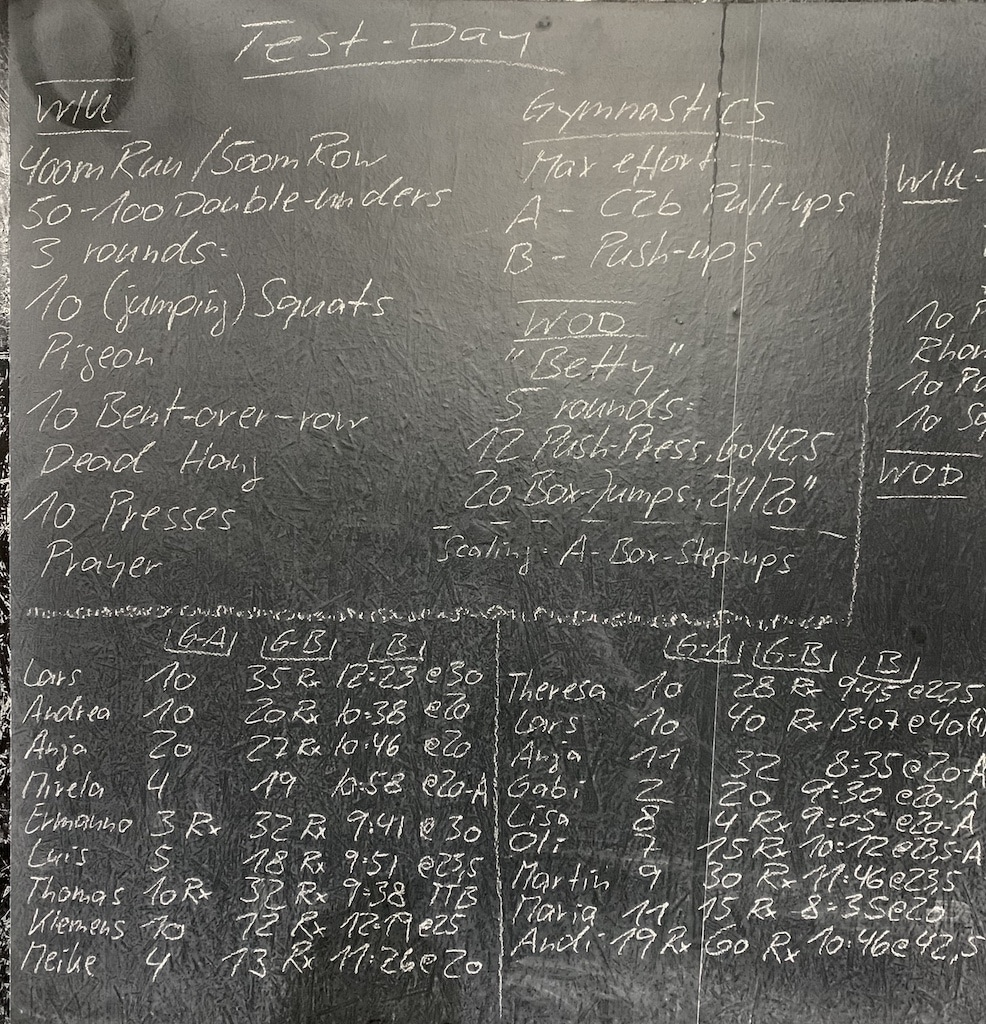 Test-Day
W/U
400m Run/500m Row
50-100 Double-unders
3 rounds:
10 (jumping) Squats
Pigeon
10 Bent-over-row
Dead Hang
10 Presses
Prayer
Gymnastics
Max effort ---
A - C2b Pull-ups
B - Push-ups
WOD
"Betty"
5 rounds:
12 Push-Press, 60/42,5
20 Box-Jumps, 24/20"
Scaling: A-Box-Step-ups
W/U-
10
10
10
WOD
G-A G-B B
Lars 10 35 Rx 12:23 @30
Andrea 10 20 Rx 10:38 @20
Anja 20 27 Rx 10:46 @20
Mirela 4 19 10:58 @20-A
Ermanno 3 Rx 32 Rx 9:41 @ 30
Luis 5 18 Rx 9:51 @23,5
Thomas 10 Rx 32 Rx 9:38 TTB
Klemens 10 12 Rx 12:19 @25
Meike 4 13 Rx 11:26 @20
G-A G-B B
Theresa 10 28 Rx 9:45 @22,5
Lars 10 40 Rx 13:07 @40
Anja 11 32 8:35 @20-A
Gabi 2 20 9:30 @20-A
Lisa 8 4 Rx 9:05 @20-A
Oli 7 15 Rx 10:12 @ -A
Martin 9 30 Rx 11:46 @23,5
Maria 11 15 Rx 8:35 @20
Andi 19 Rx 60 Rx 10:46 @42,5